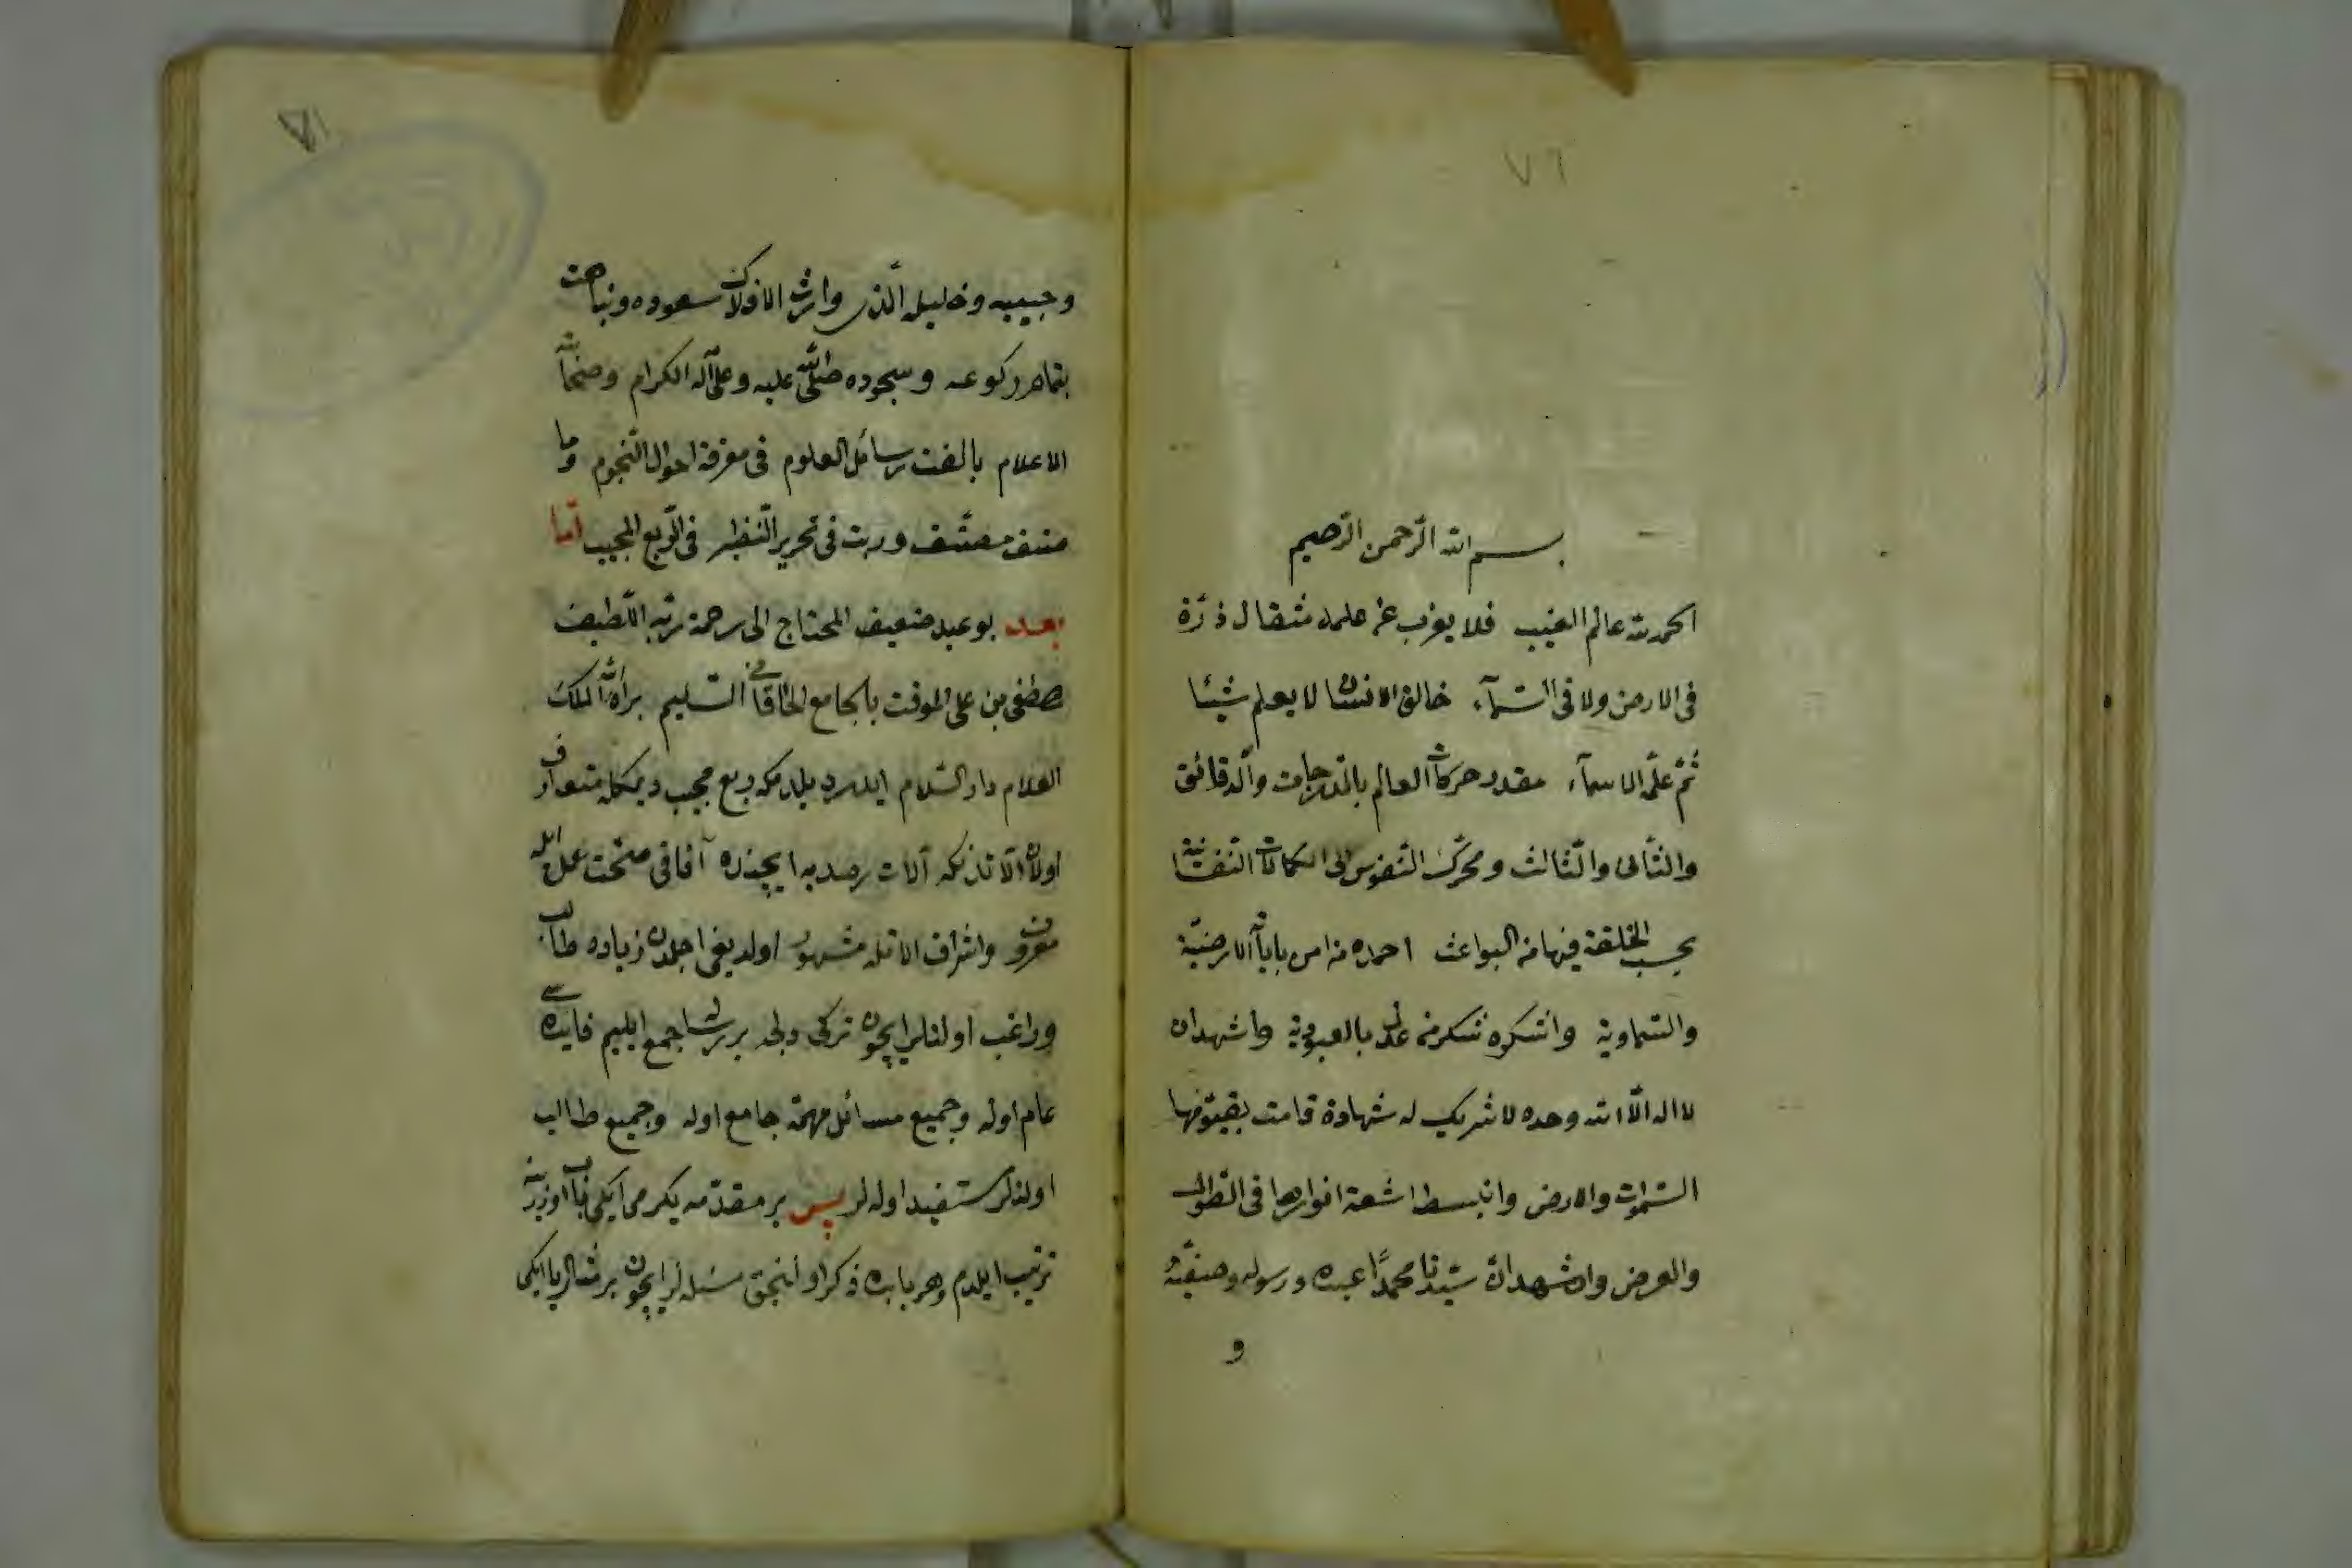 ٧٦
بسم الله الرحمن الرحيم
الحمد لله عالم الغيب فلا يعزب عن علمه مثقال ذرة
فى الارض ولا فى السمآء خالق الانسان لا يعلم شيئا
ثم علم الاسمآء مقدر حركات العالم بالدرجات والدقائق
والثانى والثالث ومحرك النفوس الى الكمالات النفسانية
بحسب الخلقة فيها من البواعث احمده من الارضية
والسماوية واشكره شكر من بالعبودية واشهد ان
لا اله الا الله وحده لا شريك له شهادة قامت بها
السموات والارض وانبسط اشعة انوارها فى الطول
والعرض واشهد ان سيدنا محمدا عبده ورسوله وصفيه
و
٧١
وحبيبه وخليله الذى الافلاك سعوده
ركوعه وسجوده صلى الله عليه وعلى آله الكرام
الاعلام رسائل العلوم فى معرفة احوال النجوم وما
مصنف فى تحرير فى الربع المجيب اما
بعد بو عبد ضعيف المحتاج الى رحمة ربه اللطيف
مصطفى بن على الموقت بالجامع الخاقانى السليم الله الملك
العلام دار السلام ربع مجيب ديمكله متعارف
اولان آلات رصديه ايچنده آفاقى صحت عمل ايله
معروف واشراف مشهور اولديغى اجلدن زياده طالب
وراغب اولنلر ايچون تركى دلجه بر رساله جمع ايليم فايده سى
عام اوله وجميع مسائل مهمه جامع اوله وجميع طالب
اولنلر مستفيد اوله لر پس بر مقدمه يكرمى ايكى باب اوزرينه
ترتيب ايلدم وهر بابده ذكر اولنجق مسئله لر ايچون بر مثال يا ايكى